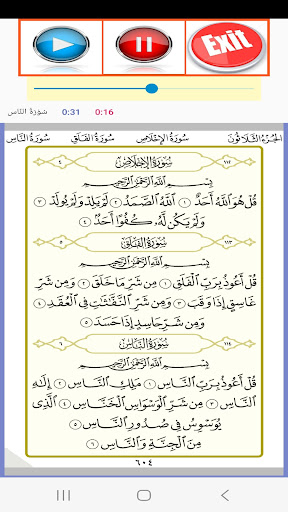 Exit
سورة الناس 0:31 0:16
الجُزءُ الثَّلَاثُونَ سُورَةُ الإِخْلَاصِ سُورَةُ الفَلَقِ سُورَةُ النَّاسِ
١١٢ سُورَةُ الإِخْلَاصِ ٤
بِسْمِ ٱللَّهِ ٱلرَّحْمَٰنِ ٱلرَّحِيمِ
قُلْ هُوَ ٱللَّهُ أَحَدٌ ١ ٱللَّهُ ٱلصَّمَدُ ٢ لَمْ يَلِدْ وَلَمْ يُولَدْ ٣
وَلَمْ يَكُن لَّهُۥ كُفُوًا أَحَدٌۢ ٤
١١٣ سُورَةُ الفَلَقِ ٥
بِسْمِ ٱللَّهِ ٱلرَّحْمَٰنِ ٱلرَّحِيمِ
قُلْ أَعُوذُ بِرَبِّ ٱلْفَلَقِ ١ مِن شَرِّ مَا خَلَقَ ٢ وَمِن شَرِّ
غَاسِقٍ إِذَا وَقَبَ ٣ وَمِن شَرِّ ٱلنَّفَّٰثَٰتِ فِى ٱلْعُقَدِ ٤
وَمِن شَرِّ حَاسِدٍ إِذَا حَسَدَ ٥
١١٤ سُورَةُ النَّاسِ ٦
بِسْمِ ٱللَّهِ ٱلرَّحْمَٰنِ ٱلرَّحِيمِ
قُلْ أَعُوذُ بِرَبِّ ٱلنَّاسِ ١ مَلِكِ ٱلنَّاسِ ٢ إِلَٰهِ
ٱلنَّاسِ ٣ مِن شَرِّ ٱلْوَسْوَاسِ ٱلْخَنَّاسِ ٤ ٱلَّذِى
يُوَسْوِسُ فِى صُدُورِ ٱلنَّاسِ ٥
مِنَ ٱلْجِنَّةِ وَٱلنَّاسِ ٦
٦٠٤